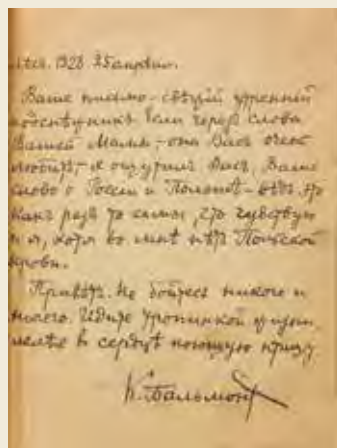 1928. 25 апрель.
Ваше письмо – свѣжій утренній
подснѣжникъ. Чрезъ слова
Вашей Мамы, – она Васъ очень
любитъ, – я ощутилъ Васъ. Ваше
слово о Россіи и Польшѣ – вѣдь это
какъ разъ то самое, что чувствую
и я, хотя во мнѣ нѣтъ Польской
крови.
Привѣтъ. Не бойтесь никого и
ничего. Идите тропинкой и
въ сердцѣ поющую
К. Бальмонт